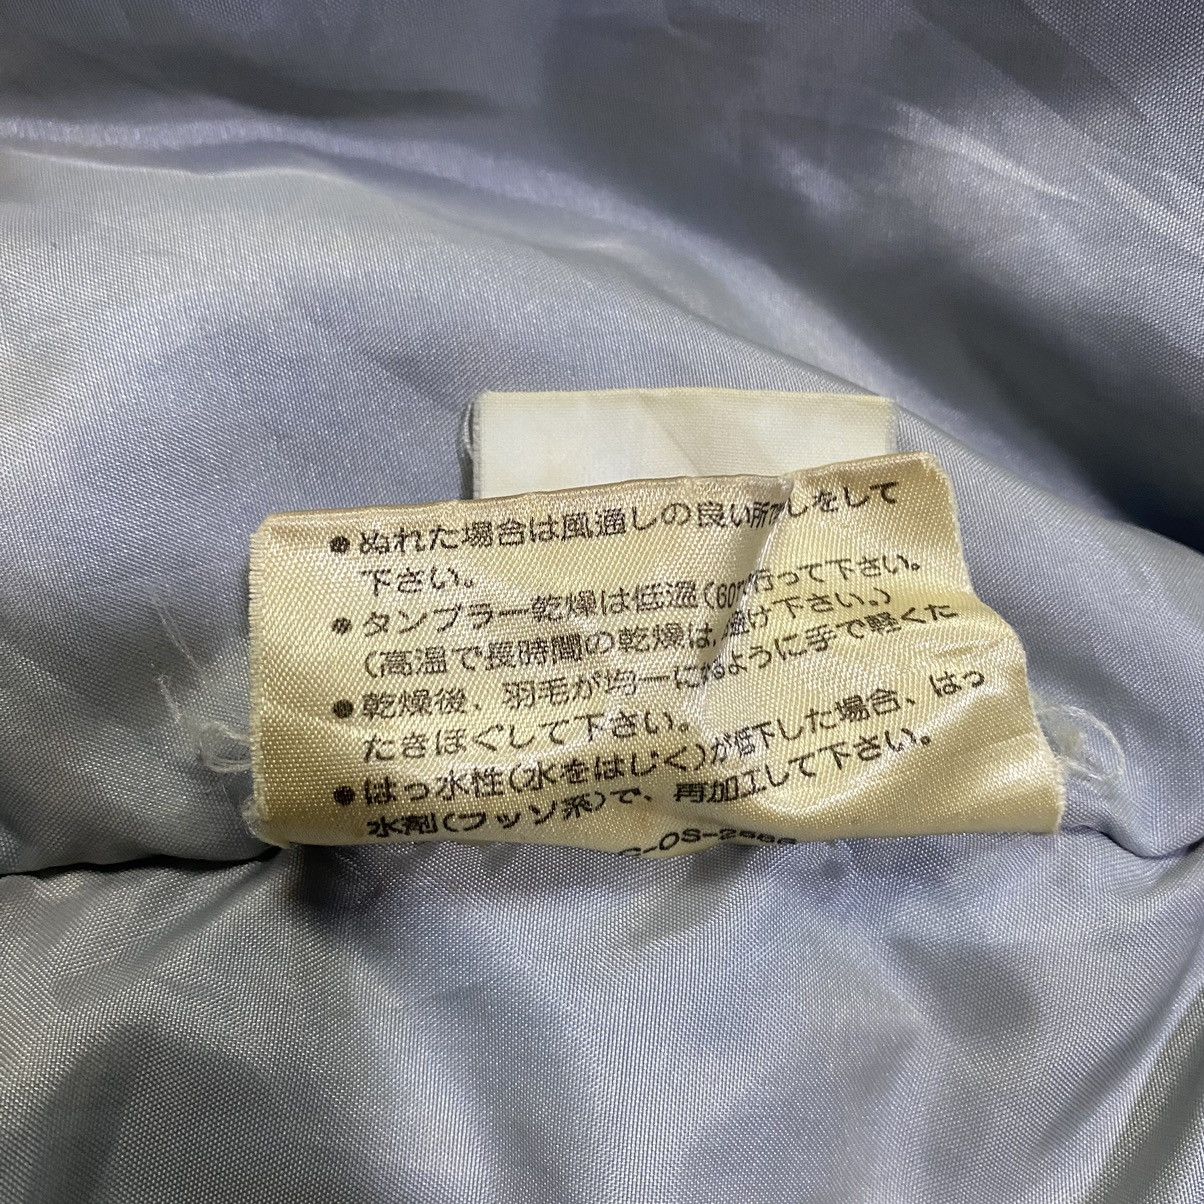 ●ぬれた場合は風通しの良い所で しをして
下さい。
●タンブラー乾燥は低温(60 行って下さい。
(高温で長時間の乾燥は、避け下さい。)
●乾燥後、羽毛が均一になるように手で軽くた
たきほぐして下さい。
●はっ水性(水をはじく)が低下した場合、はっ
水剤(フッソ系)で、再加工して下さい。
C-OS-2